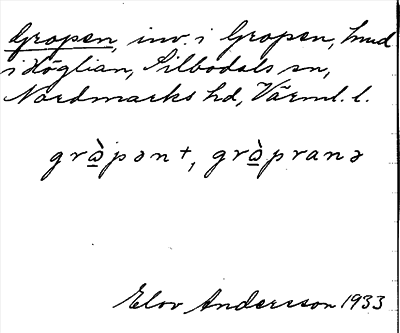 Gropen, inv. i Gropen, hmd
i Höglian, Silbodals sn,
Nordmarks hd, Värml. l.
grɔ̀pən+, grɔ̀pranə
Elov Andersson 1933